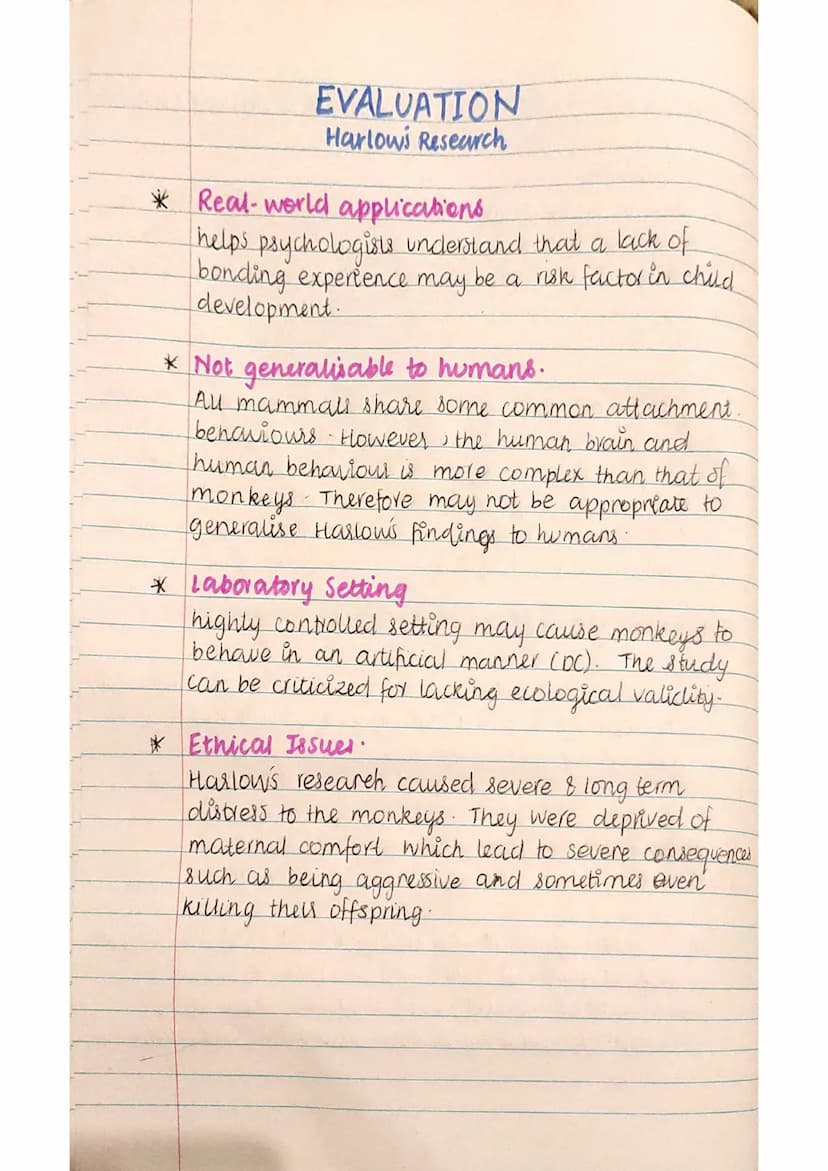 EVALUATION
Harlow's Research
* Real-world applications
helps psychologists understand that a lack of
bonding experience may be a risk factor in child
development.
* Not generalisable to humans.
All mammals share some common attachment.
behaviours. However, the human brain and
human behaviour is more complex than that of
monkeys. Therefore may not be appropriate to
generalise Harlow's findings to humans.
* Laboratory Setting
highly controlled setting may cause monkeys to
behave in an artificial manner (DC). The study
can be criticized for lacking ecological validity.
* Ethical Issues.
Harlow's research caused severe & long term
distress to the monkeys. They were deprived of
maternal comfort which lead to severe consequences
such as being aggressive and sometimes even
killing their offspring.